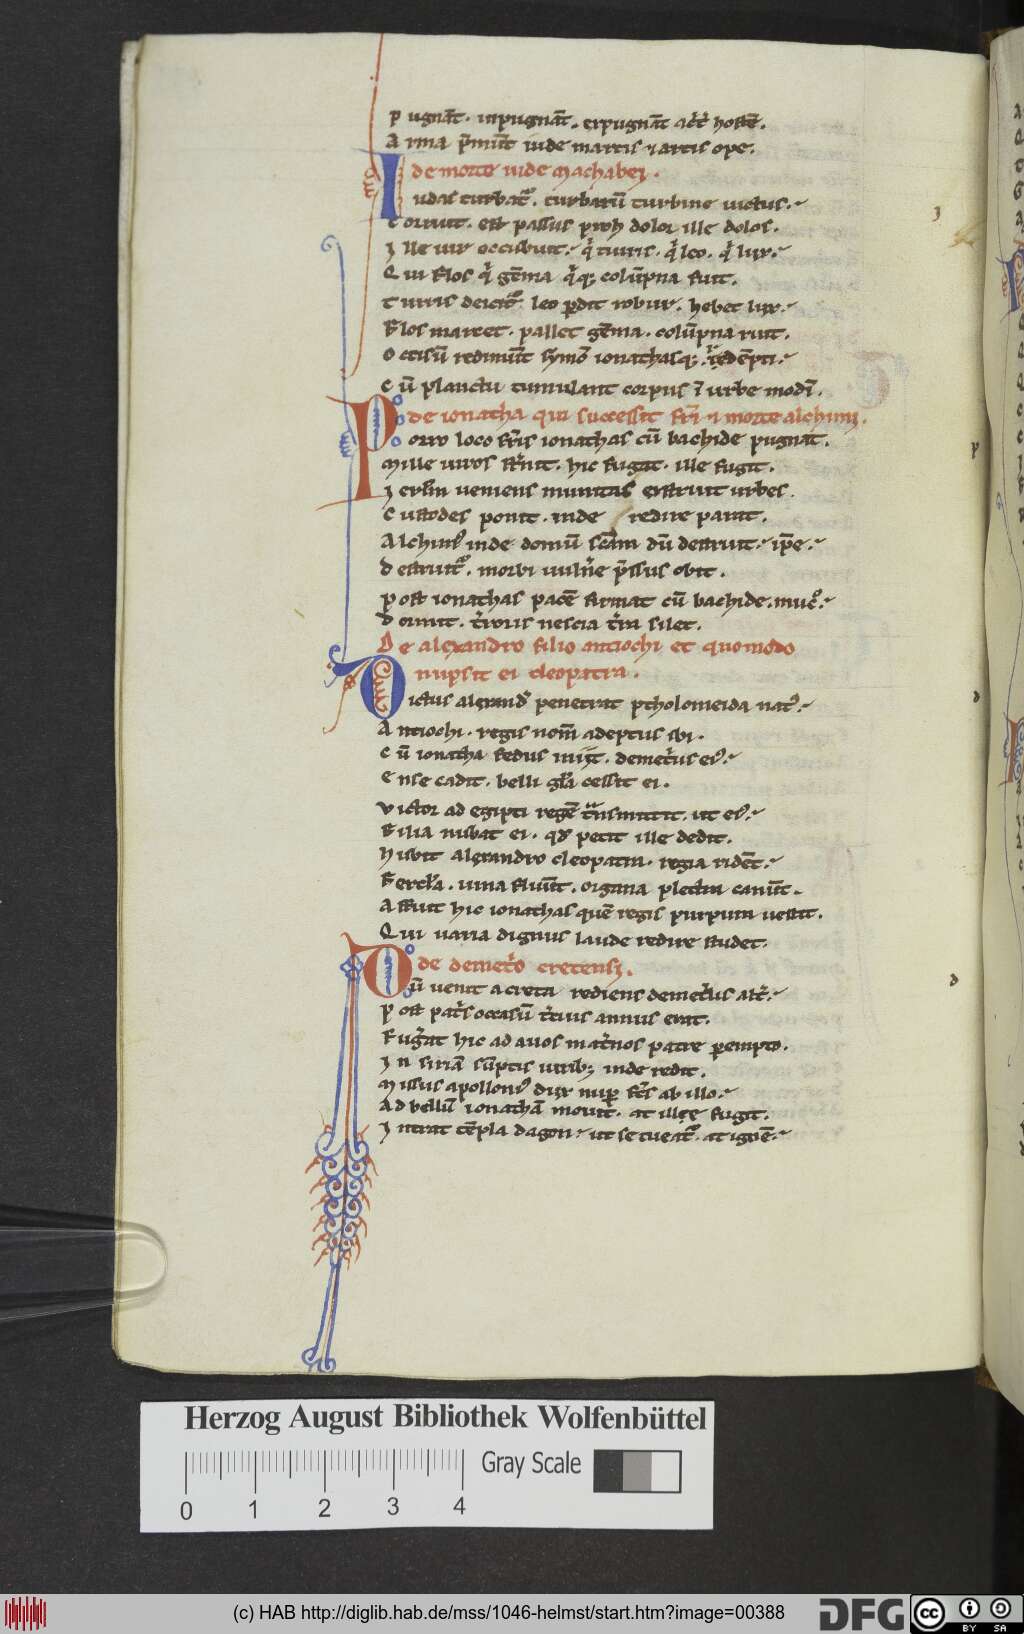 Pugnāt. inpugnāt. expugnāt
Arma p̄mūt iude martis ⁊ artis ope.
de morte iude machabei.
Iudas turbat᷑. turbarū turbine uictus.
Corruit. est passus proh dolor ille dolos.
Ille uir occubuit. q̄ turris. q̄ leo. q̄ lux.
Qui flos q̄ gēma q̄q; colūpna fuit.
Turris deicit᷑. leo p̄dit robur. hebet lux.
Flos marcet. pallet gēma. colūpna ruit.
Occisū redimūt symō ionathasq;.
Cū planctu tumulant corpus ī urbe modī.
de ionatha qui successit fr̄i ⁊ morte alchimi.
Porro loco fr̄is ionathas cū bachide pugnat.
Mille uiros st̄nit. hic fugat. ille fugit.
I erl̄m ueniens munitas exstruit urbes.
Custodes ponit. inde redire parat.
Alchim᷒ inde domū scām dū destruit. ip̄e.
Destruit᷑. morbi uuln̄e p̄ssus obit.
Post ionathas pacē firmat cū bachide.
Dormit. t̄roris nescia t̄ra silet.
De alexandro filio antiochi et quomodo
nupsit ei cleopatra.
Dictus alexand᷑ penetrat ptholomeida nat᷒.
Antiochi. regis nom̄ adeptus sibi.
Cū ionatha fedus init. demet̄us ei᷒.
Ense cadit. belli gl̄a cessit ei.
Victor ad egipti regē t̄nsmittit. ut ei᷒.
Filia nubat ei. qd̄ petit ille dedit.
Nubit alexandro cleopatra. regia ridēt.
Fercl̄a. uina fluūt. organa plectra canūt.
Affuit hic ionathas quē regis purpura uestit.
Qui uaria dignus laude redire studet.
de demet̄o cretensi.
Dū uenit a creta rediens demet̄us alt̄.
Post pat̄s occasū t̄tius annus erat.
Fuḡat hic ad auos mat̄nos patre p̄empto.
In siriā sūptis uirib; inde redit.
Missus apolloni᷒ dux nup̄ ab illo.
Ad bellū ionathā mouit. at ille fugit.
Intrat tēpla dagon. ut se tueat᷑. at ignē.
Herzog August Bibliothek Wolfenbüttel
0 1 2 3 4
Gray Scale
(c) HAB http://diglib.hab.de/mss/1046-helmst/start.htm?image=00388
DFG
cc BY SA